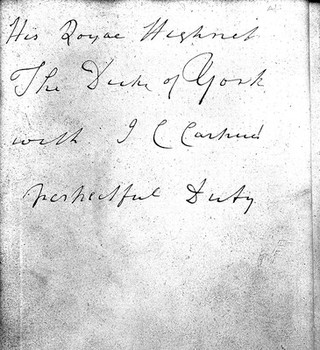 His Royal Highness
The Duke of York
with J C
respectful Duty